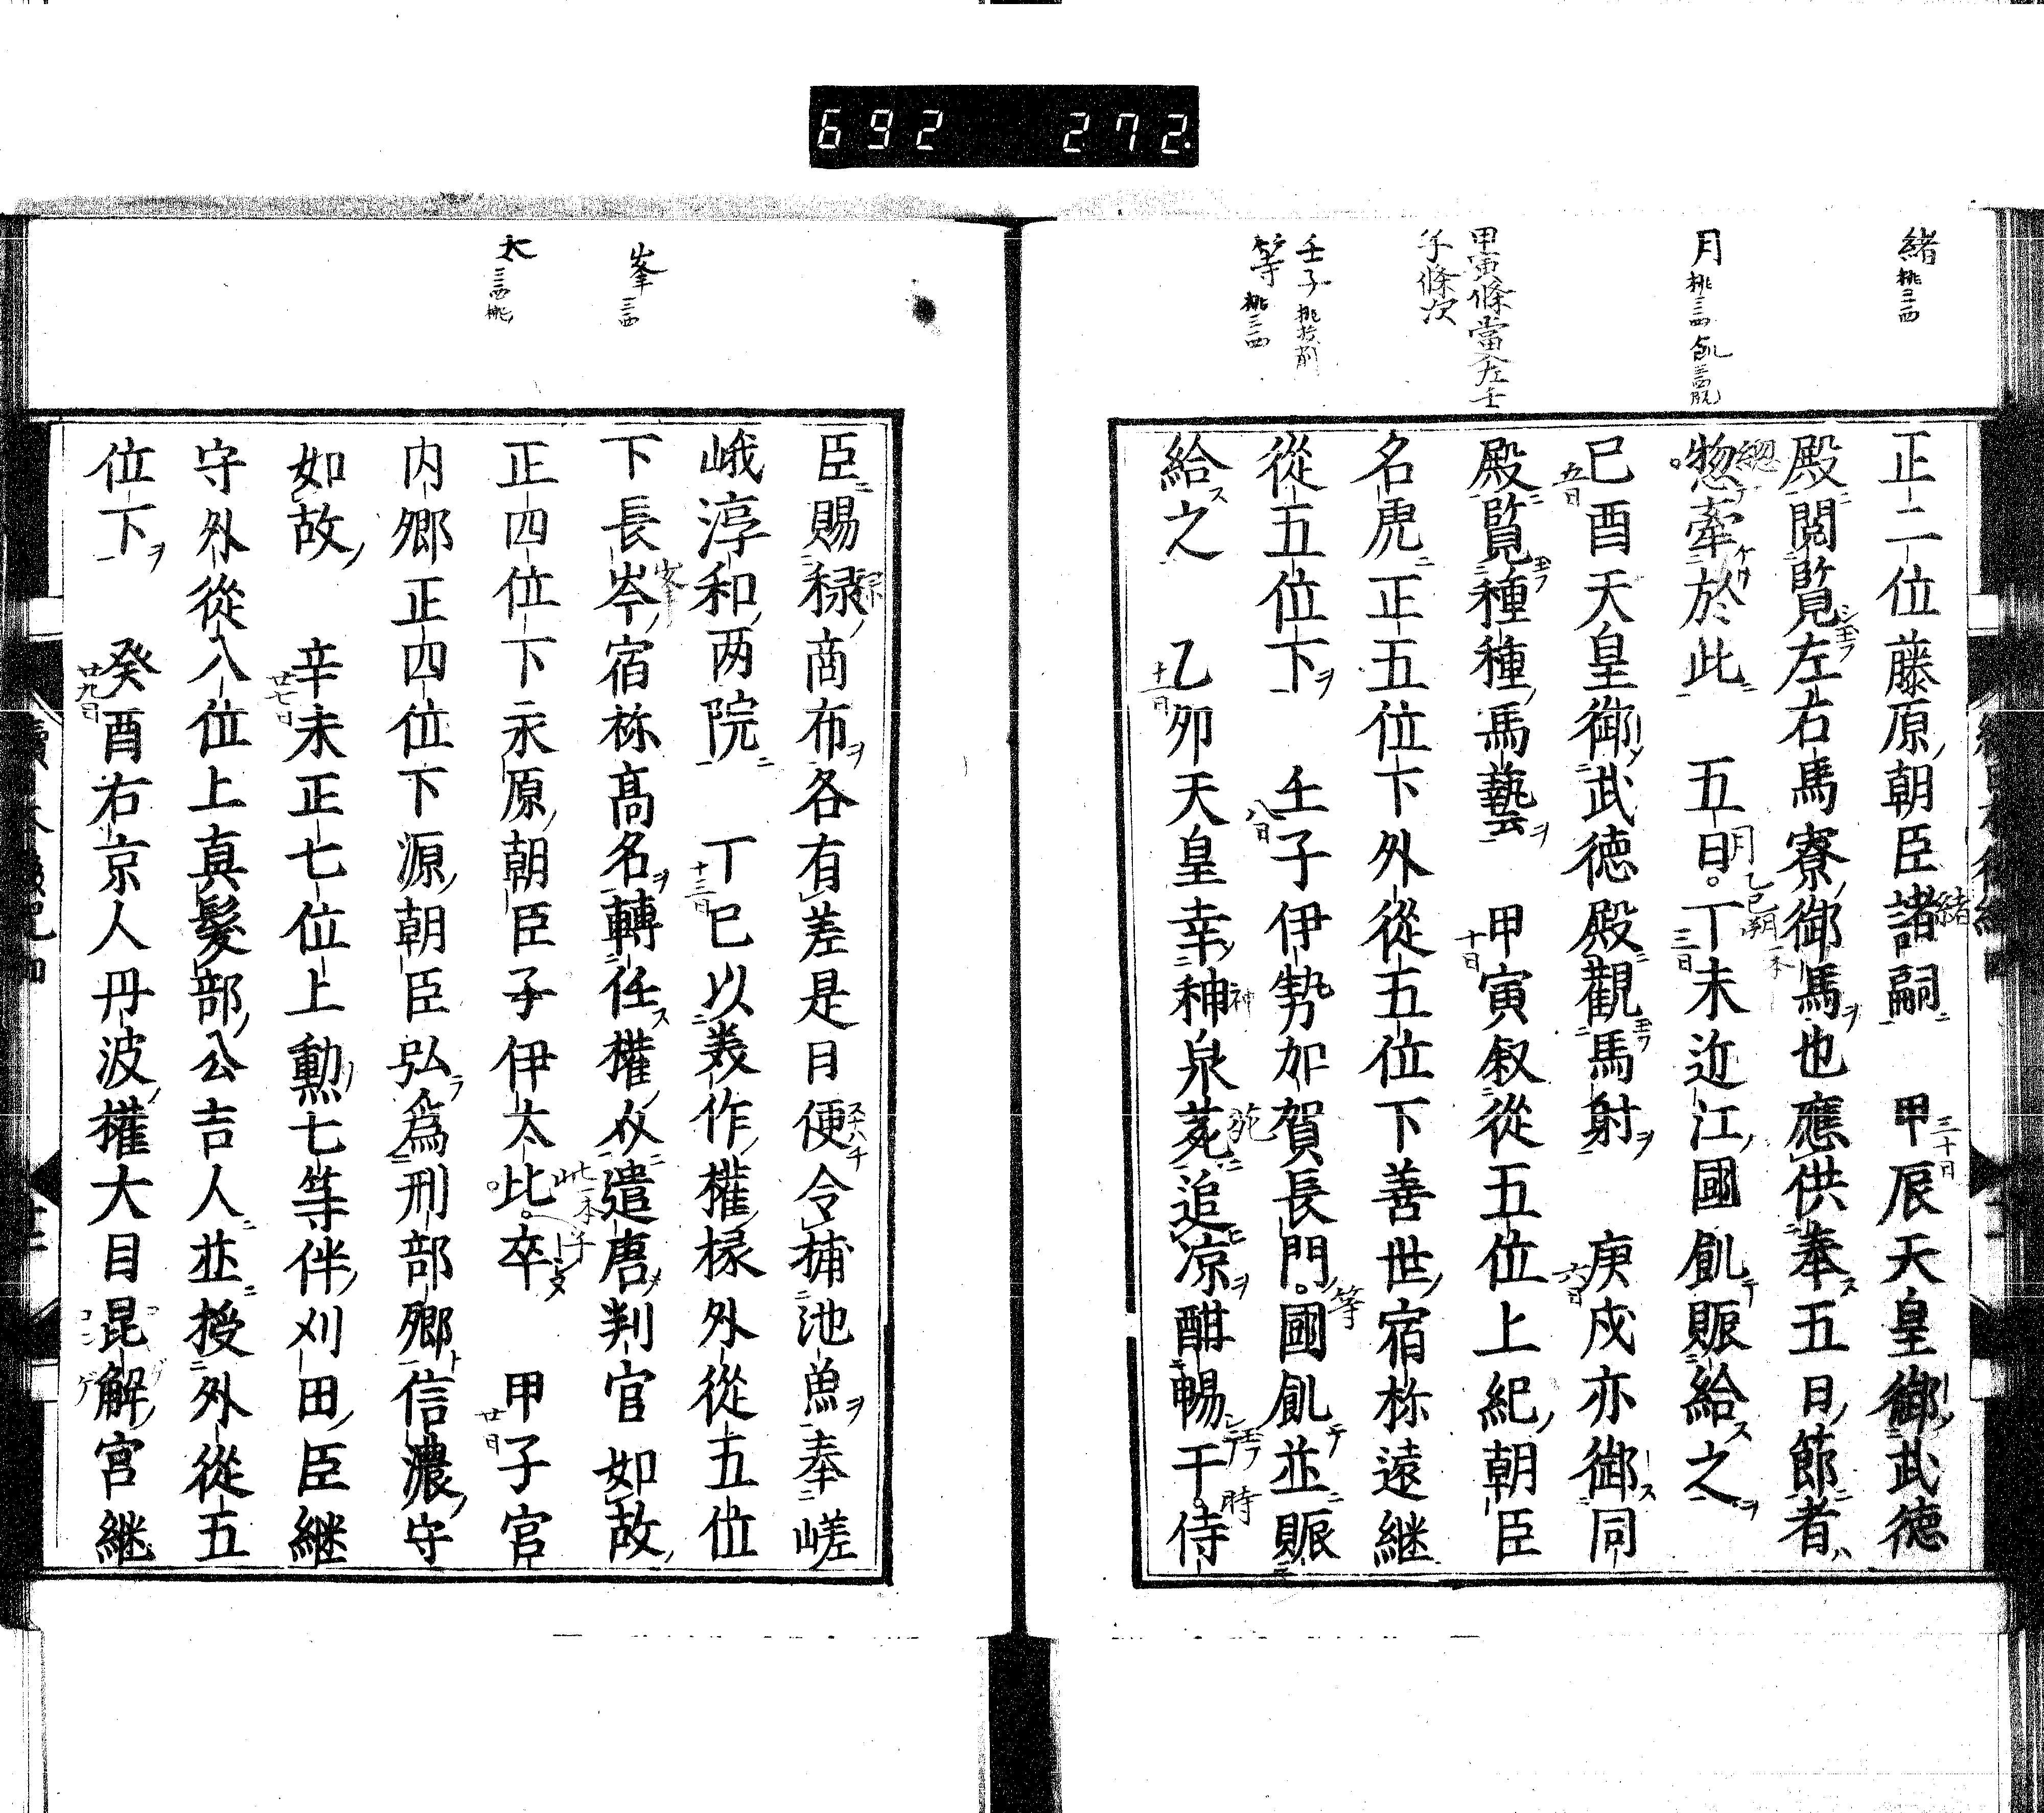 692 272
緒 桃三西
月 桃三西 飢 三西既
甲寅條當在壬
子條次
壬子 桃挍削
等 桃三西
正二位藤原朝臣諸嗣 甲辰天皇御武徳
殿閲覧左右馬寮御馬也應供奉五日節者
惣牽於此 五日丁未近江國飢賑給之
己酉天皇御武徳殿觀馬射 庚戌亦御同
殿覧種種馬藝 甲寅叙從五位上紀朝臣
名虎正五位下外從五位下善世宿祢遠継
從五位下 壬子伊勢加賀長門國飢並賑
給之 乙夘天皇幸神泉苑追凉酣暢干侍
峯 三西
太 三西桃
臣賜禄商布各有差是日便令捕池魚奉嵯
峨淳和两院 丁巳以美作權椽外從五位
下長岑宿祢髙名轉任權介遣唐判官如故
正四位下永原朝臣子伊太比卒 甲子宮
内郷正四位下源朝臣弘爲刑部郷信濃守
如故 辛未正七位上勳七等伴刈田臣継
守外從八位上真髮部公吉人並授外從五
位下 癸酉右京人丹波權大目昆解宮継